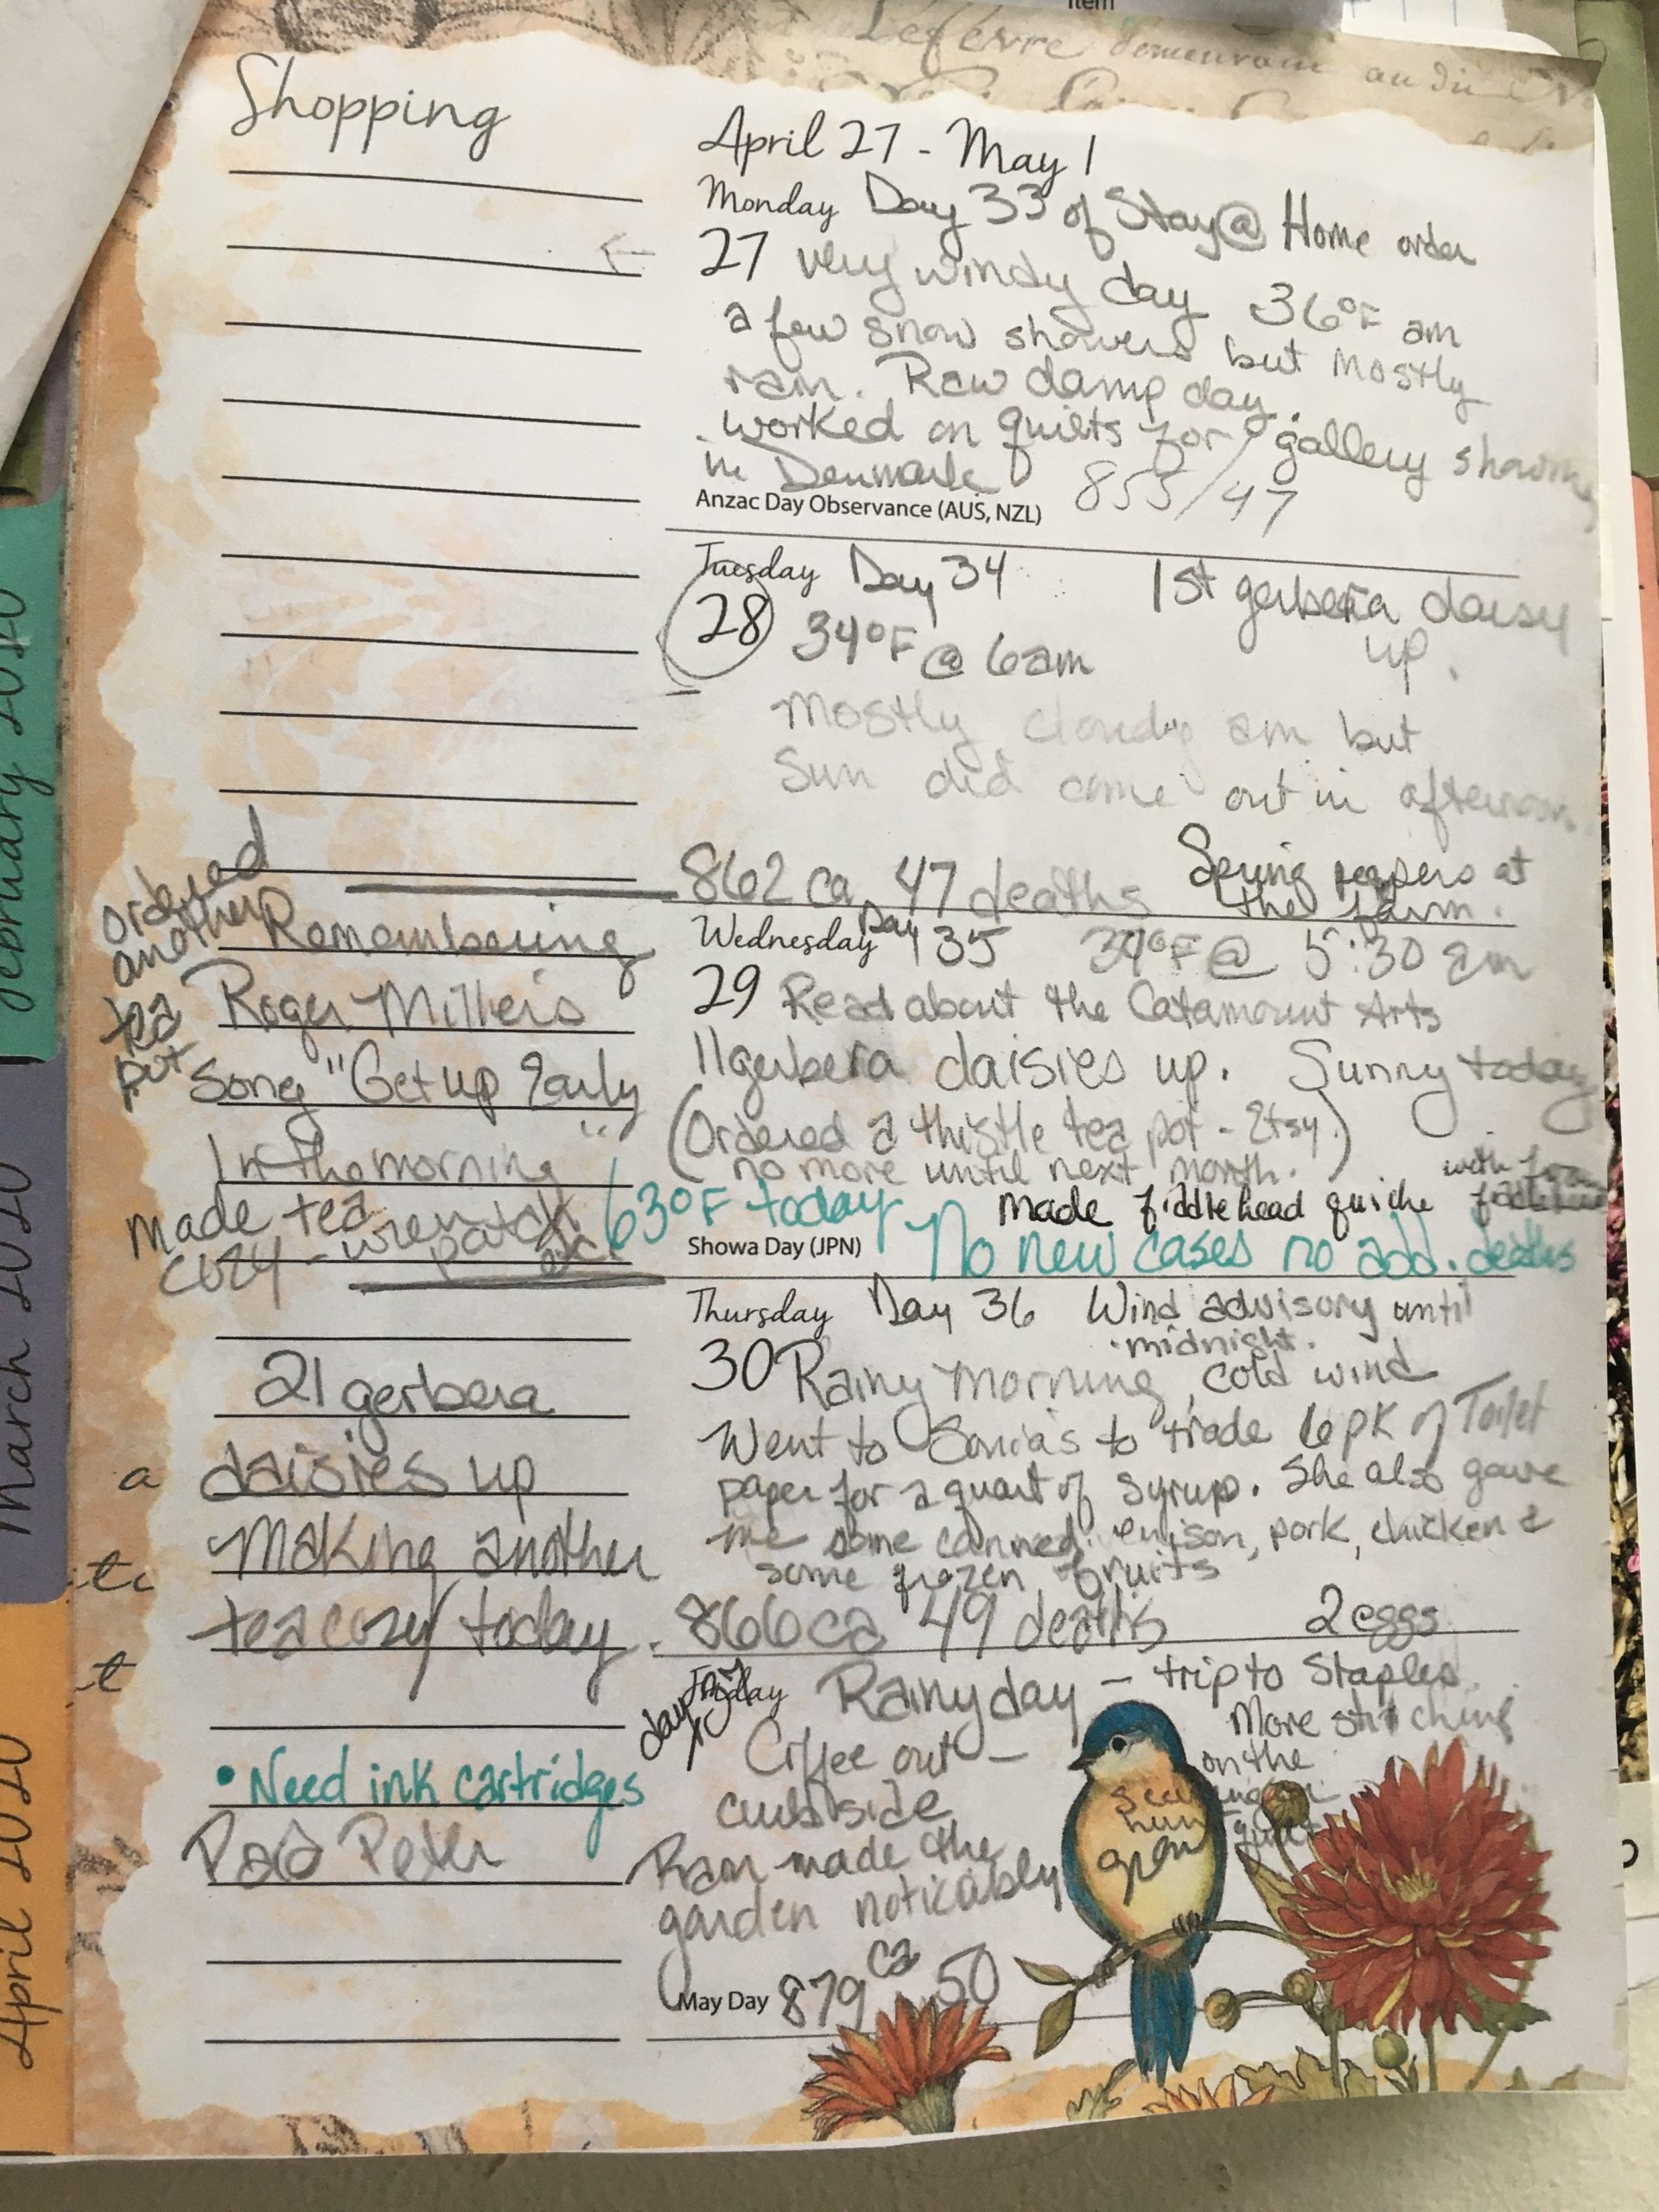 Item
Lefevre demeurant au dit
Shopping
April 27 - May 1
Monday Day 33 of Stay@Home order
27 very windy day 36°F am
a few snow showers but mostly
rain. Raw damp day.
worked on quilts for gallery showing
in Denmark 855/47
Anzac Day Observance (AUS, NZL)
Tuesday Day 34 1st gerbera daisy
up.
28 34°F @ 6am
Mostly cloudy am but
Sun did come out in afternoon
862 ca 47 deaths Spring peepers at
the farm.
Wednesday Day 35 34°F @ 5:30 am
29 Read about the Catamount Arts
11 gerbera daisies up. Sunny today
(Ordered a thistle tea pot - Etsy.)
no more until next month.
63°F today made fiddlehead quiche with
Showa Day (JPN) No new cases no add. deaths
Thursday Day 36 Wind advisory until
midnight.
30 Rainy morning, cold wind
Went to Sonia's to trade 6pk of Toilet
paper for a quart of syrup. She also gave
me some canned venison, pork, chicken &
some frozen fruits
866 ca 49 deaths 2 eggs
Friday day 37
Rainy day - trip to Staples
More stitching
on the
Coffee out -
curbside
Rain made the
garden noticably
grow
May Day 879 ca 50
ordered
another
tea
pot
Remembering
Roger Miller's
Song "Get up Early
In the morning"
made tea
cozy - wren patch
etc.
21 gerbera
daisies up
Making another
tea cozy today.
• Need ink cartridges
Paid Peter
February 2020
March 2020
April 2020